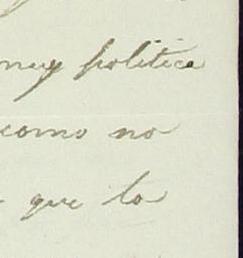 muy politica
como no
que lo